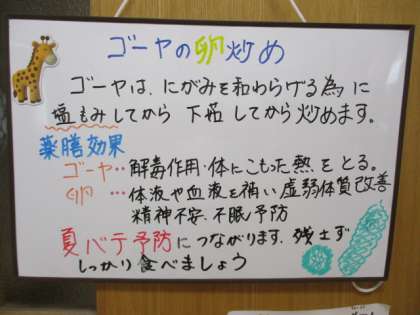 ゴーヤの卵炒め
ゴーヤは、にがみを和わらげる為に
塩もみしてから 下茹してから炒めます。
薬膳効果
ゴーヤ‥解毒作用・体にこもった熱をとる。
卵‥体液や血液を補い虚弱体質改善
精神不安、不眠予防
夏バテ予防につながります。残さず
しっかり食べましょう